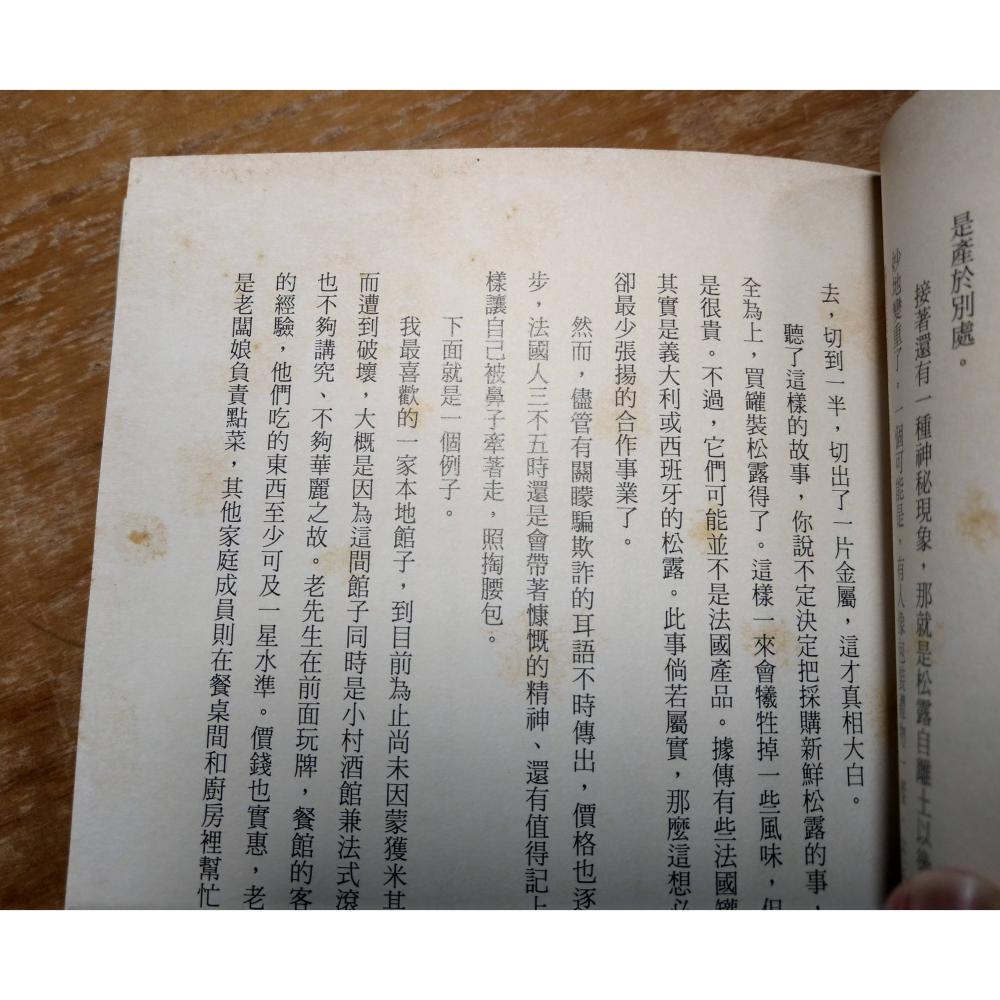 是產於別處。
接著還有一種神秘現象，那就是松露自離土以後
妙地變重了，一個可能是，有人像包裝禮物一樣
去，切到一半，切出了一片金屬，這才真相大白。
聽了這樣的故事，你說不定決定把採購新鮮松露的事，
全為上，買罐裝松露得了。這樣一來會犧牲掉一些風味，但
是很貴。不過，它們可能並不是法國產品。據傳有些法國罐
其實是義大利或西班牙的松露。此事倘若屬實，那麼這想必
卻最少張揚的合作事業了。
然而，儘管有關矇騙欺詐的耳語不時傳出，價格也逐
步，法國人三不五時還是會帶著慷慨的精神、還有值得記上
樣讓自己被鼻子牽著走，照掏腰包。
下面就是一個例子。
我最喜歡的一家本地館子，到目前為止尚未因蒙獲米其
而遭到破壞，大概是因為這間館子同時是小村酒館兼法式滾
也不夠講究、不夠華麗之故。老先生在前面玩牌，餐館的客
的經驗，他們吃的東西至少可及一星水準。價錢也實惠，老
是老闆娘負責點菜，其他家庭成員則在餐桌間和廚房裡幫忙